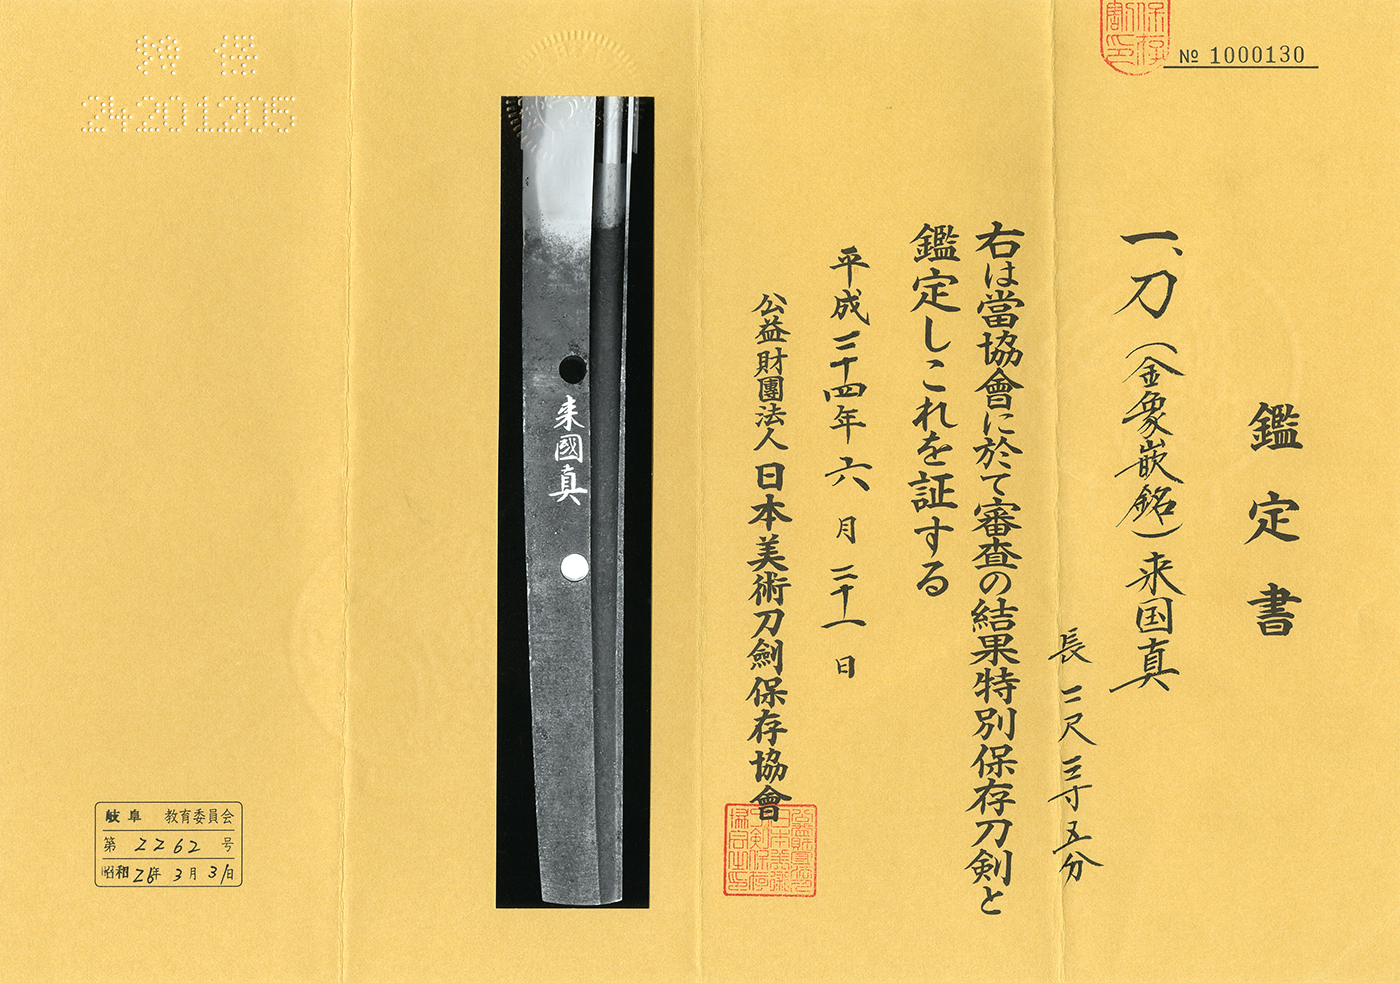 № 1000130
鑑定書
一、刀(金象嵌銘)来国真
長二尺三寸五分
右は當協會に於て審査の結果特別保存刀剣と
鑑定しこれを証する
平成二十四年六月二十一日
公益財團法人日本美術刀劍保存協會
来國真
特保
24201205
岐阜 教育委員会
第 2262 号
昭和26年3月31日